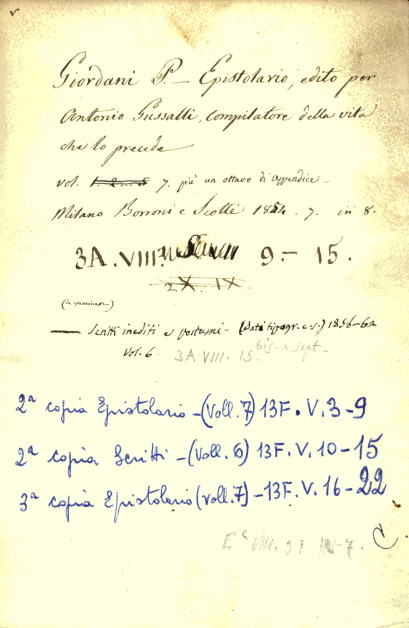 Giordani P. — Epistolario, edito per
Antonio Gussalli, compilatore della vita
che lo precede
vol. 7. più un ottavo di Appendice.
Milano Borroni e Scotti 1854. 7. in 8.
3A.VIII. 9 – 15.
2X. IX
— Scritti inediti e postumi – (Data tipogr. c. s.) 1856–62
Vol. 6 3A.VIII. 15 bis. a sept.
2ª copia Epistolario – (Voll. 7) 13F. V. 3–9
2ª copia Scritti – (Voll. 6) 13F. V. 10–15
3ª copia Epistolario (voll. 7) – 13F. V. 16–22
C.